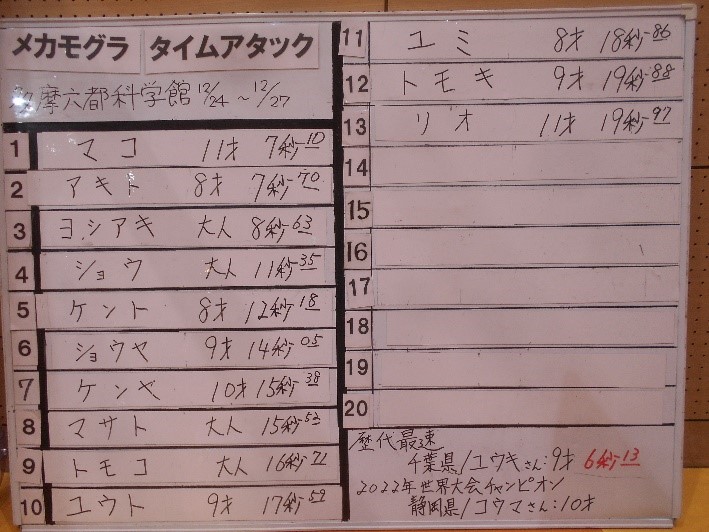 メカモグラ タイムアタック
多摩六都科学館 12/24 ~ 12/27
1 マコ 11才 7秒10
2 アキト 8才 7秒70
3 ヨシアキ 大人 8秒63
4 ショウ 大人 11秒35
5 ケント 8才 12秒18
6 ショウヤ 9才 14秒05
7 ケンヤ 10才 15秒38
8 マサト 大人 15秒52
9 トモコ 大人 16秒71
10 ユウト 9才 17秒59
11 ユミ 8才 18秒86
12 トモキ 9才 19秒88
13 リオ 11才 19秒97
14
15
16
17
18
19
20
歴代最速
千葉県/ユウキさん:9才 6秒13
2022年世界大会チャンピオン
静岡県/コウマさん:10才